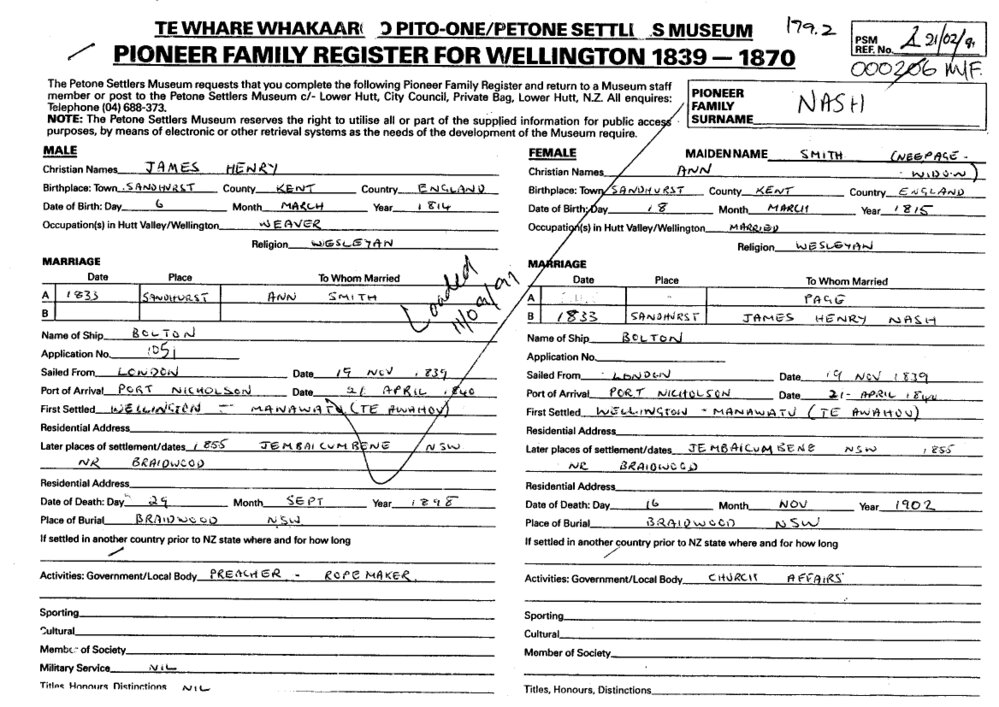 TE WHARE WHAKAAR( O PITO-ONE/PETONE SETTL S MUSEUM 179.2
PIONEER FAMILY REGISTER FOR WELLINGTON 1839 — 1870
PSM REF. No. 21/02/9,
000206 M/F.
The Petone Settlers Museum requests that you complete the following Pioneer Family Register and return to a Museum staff
member or post to the Petone Settlers Museum c/- Lower Hutt, City Council, Private Bag, Lower Hutt, N.Z. All enquires:
Telephone (04) 688-373.
NOTE: The Petone Settlers Museum reserves the right to utilise all or part of the supplied information for public access
purposes, by means of electronic or other retrieval systems as the needs of the development of the Museum require.
PIONEER
FAMILY
SURNAME NASH
MALE
Christian Names JAMES HENRY
Birthplace: Town SANDHURST County KENT Country ENGLAND
Date of Birth: Day 6 Month MARCH Year 1814
Occupation(s) in Hutt Valley/Wellington WEAVER
Religion WESLEYAN
MARRIAGE
Date Place To Whom Married
A 1833 SANDHURST ANN SMITH
B
Loaded
11/09/91
Name of Ship BOLTON
Application No. 1051
Sailed From LONDON Date 19 NOV 1839
Port of Arrival PORT NICHOLSON Date 21 APRIL 1840
First Settled WELLINGTON - MANAWATU (TE AWAHOU)
Residential Address
Later places of settlement/dates 1855 JEMBAICUMBENE NSW
NR BRAIDWOOD
Residential Address
Date of Death: Day 29 Month SEPT Year 1898
Place of Burial BRAIDWOOD NSW
If settled in another country prior to NZ state where and for how long
Activities: Government/Local Body PREACHER - ROPE MAKER
Sporting
Cultural
Member of Society
Military Service NIL
Titles Honours Distinctions NIL
FEMALE MAIDEN NAME SMITH (NEE PAGE -
Christian Names ANN - WIDOW)
Birthplace: Town SANDHURST County KENT Country ENGLAND
Date of Birth: Day 18 Month MARCH Year 1815
Occupation(s) in Hutt Valley/Wellington MARRIED
Religion WESLEYAN
MARRIAGE
Date Place To Whom Married
A PAGE
B 1833 SANDHURST JAMES HENRY NASH
Name of Ship BOLTON
Application No.
Sailed From LONDON Date 19 NOV 1839
Port of Arrival PORT NICHOLSON Date 21 - APRIL 1840
First Settled WELLINGTON - MANAWATU (TE AWAHOU)
Residential Address
Later places of settlement/dates JEMBAICUMBENE NSW 1855
NR BRAIDWOOD
Residential Address
Date of Death: Day 16 Month NOV Year 1902
Place of Burial BRAIDWOOD NSW
If settled in another country prior to NZ state where and for how long
Activities: Government/Local Body CHURCH AFFAIRS
Sporting
Cultural
Member of Society
Titles, Honours, Distinctions